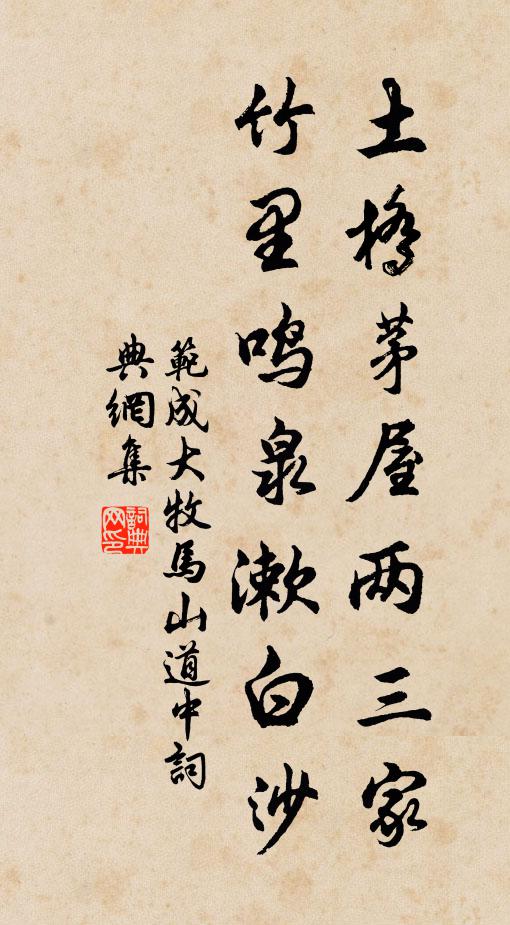 土橋茅屋两三家
竹里鸣泉漱白沙
範成大牧馬山道中詞
典網集
詞典網印